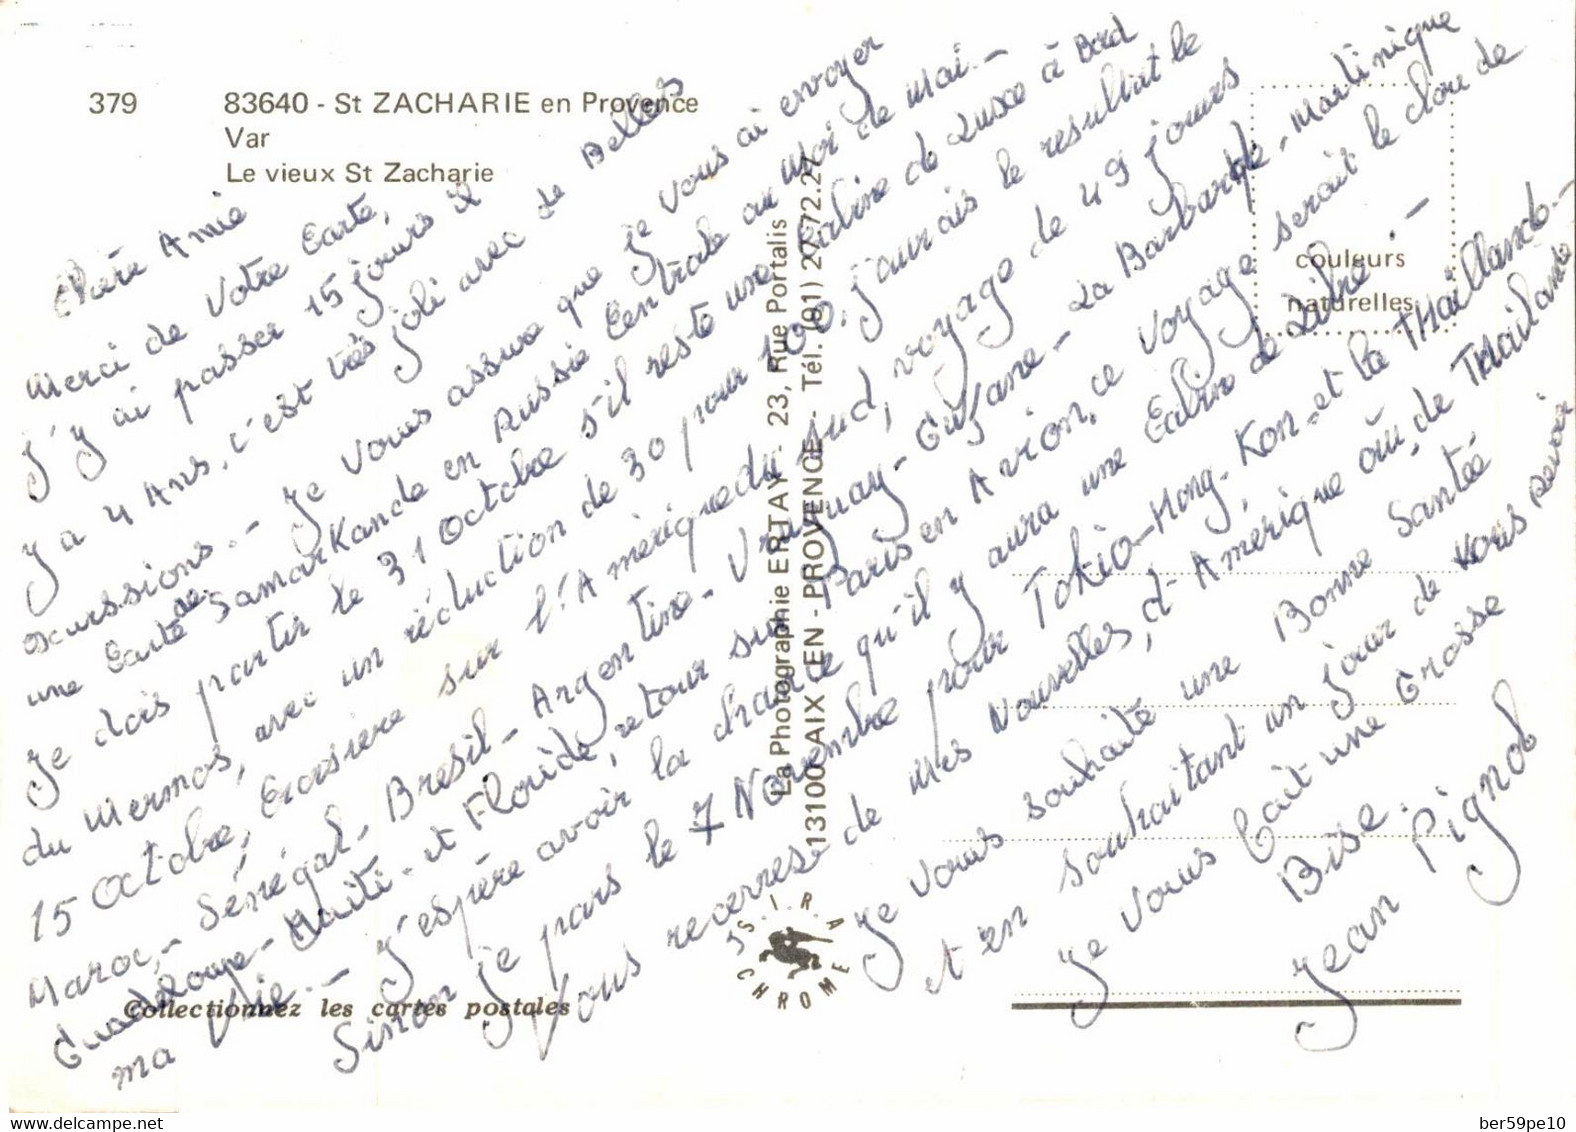 379
83640 - St ZACHARIE en Provence
Var
Le vieux St Zacharie
Chère Amie
Merci de Votre Carte,
J'y ai passer 15 jours il
y a 4 Ans, c'est très joli avec de Belles
excurssions.- Je Vous assure que je Vous ai envoyer
une Carte de Samarkande en Russie Centrale au Moi de Mai.-
Je dois partir le 31 Octobre s'il reste une Cabine de Luxe à Bord
du Mermos, avec un réduction de 30 pour 100. j'aurais le resultat le
15 Octobre, Croisiere sur l'Amérique du Sud, voyage de 49 jours
Maroc,- Sénégal- Brésil- Argentine- Uruguay- Guyane- La Barbarde- Martinique
Guadeloupe- Haïti- et Floride, retour sur Paris en Avion, ce Voyage serait le clou de
ma Vie.- J'espère avoir la chance qu'il y aura une Cabine de Libre.-
Sinon je pars le 7 Novembre pour Tokio-Hong-Kon- et la THaillande-
Vous recevres de mes Nouvelles, d'Amérique où de THaïlande
Je Vous souhaite une Bonne Santé
et en souhaitant un jour de Vous revoir
Je Vous fait une Grosse
Bise.
Jean Pignol
La Photographie ERTAY - 23, Rue Portalis
13100 AIX EN - PROVENCE - Tél. (91) 27.72.27
couleurs
naturelles
S.I.R.A
CHROME
Collectionnez les cartes postales
delcampe.net
ber59pe10